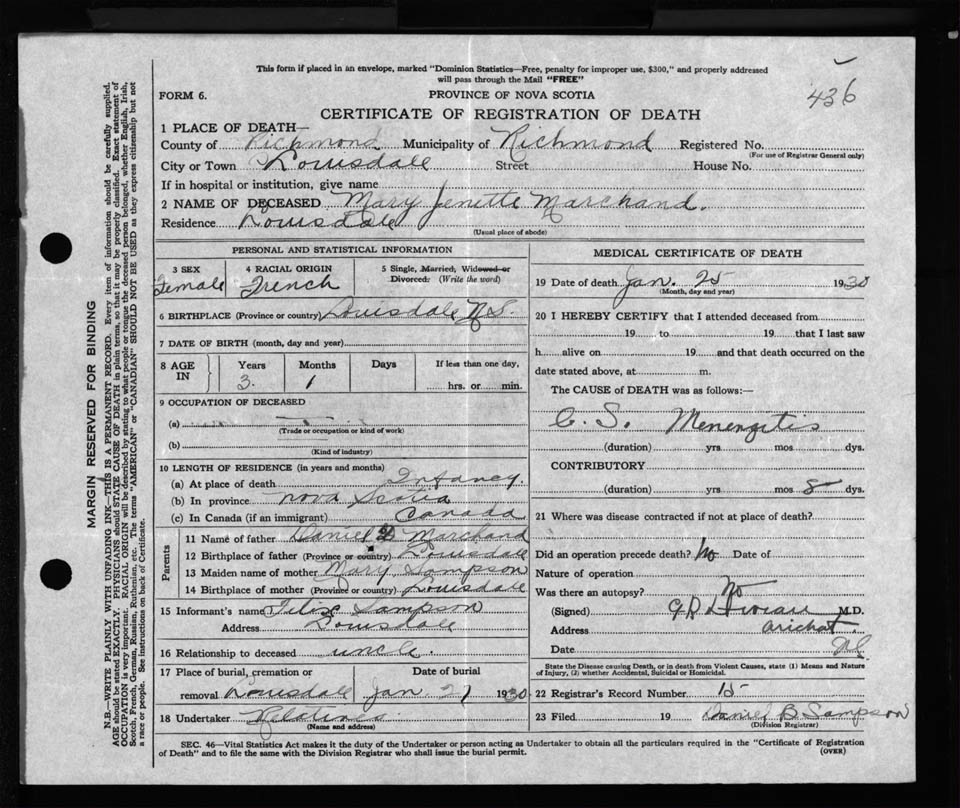 This form if placed in an envelope, marked "Dominion Statistics—Free, penalty for improper use, $300," and properly addressed
will pass through the Mail "FREE"
436
FORM 6.
PROVINCE OF NOVA SCOTIA
CERTIFICATE OF REGISTRATION OF DEATH
1 PLACE OF DEATH—
County of Richmond Municipality of Richmond Registered No.
(For use of Registrar General only)
City or Town Louisdale Street House No.
If in hospital or institution, give name
2 NAME OF DECEASED Mary Jenette Marchand.
Residence Louisdale
(Usual place of abode)
PERSONAL AND STATISTICAL INFORMATION
3 SEX
Female
4 RACIAL ORIGIN
French
5 Single, Married, Widowed or
Divorced: (Write the word)
6 BIRTHPLACE (Province or country) Louisdale N.S.
7 DATE OF BIRTH (month, day and year)
8 AGE IN
Years 3.
Months 1
Days
If less than one day,
hrs. or min.
9 OCCUPATION OF DECEASED
(a)
(Trade or occupation or kind of work)
(b)
(Kind of industry)
10 LENGTH OF RESIDENCE (in years and months)
(a) At place of death Infancy.
(b) In province Nova Scotia
(c) In Canada (if an immigrant) Canada
Parents
11 Name of father Daniel Marchand
12 Birthplace of father (Province or country) Louisdale
13 Maiden name of mother Mary Sampson
14 Birthplace of mother (Province or country) Louisdale
15 Informant's name Felix Sampson
Address Louisdale
16 Relationship to deceased uncle.
17 Place of burial, cremation or Date of burial
removal Louisdale Jan 27 1930
18 Undertaker
(Name and address)
MEDICAL CERTIFICATE OF DEATH
19 Date of death Jan. 25 1930
(Month, day and year)
20 I HEREBY CERTIFY that I attended deceased from
19 to 19 that I last saw
h alive on 19 and that death occurred on the
date stated above, at m.
The CAUSE of DEATH was as follows:—
C. S. Menengitis
(duration) yrs mos dys.
CONTRIBUTORY
(duration) yrs mos 8 dys.
21 Where was disease contracted if not at place of death?
Did an operation precede death? No Date of
Nature of operation
Was there an autopsy? No
(Signed) M.D.
Address Arichat
Date
State the Disease causing Death, or in death from Violent Causes, state (1) Means and Nature
of Injury, (2) whether Accidental, Suicidal or Homicidal.
22 Registrar's Record Number 15
23 Filed 19 Daniel B Sampson
(Division Registrar)
SEC. 46—Vital Statistics Act makes it the duty of the Undertaker or person acting as Undertaker to obtain all the particulars required in the "Certificate of Registration
of Death" and to file the same with the Division Registrar who shall issue the burial permit.
(OVER)
MARGIN RESERVED FOR BINDING
N.B.—WRITE PLAINLY WITH UNFADING INK—THIS IS A PERMANENT RECORD. Every item of information should be carefully supplied.
AGE should be stated EXACTLY. PHYSICIANS should STATE CAUSE OF DEATH in plain terms, so that it may be properly classified. Exact statement of
OCCUPATION is very important. RACIAL ORIGIN will be described by stating to what people or tongue the deceased person belonged, whether English, Irish,
Scotch, French, German, Russian, Ruthenian, etc. The terms "AMERICAN" or "CANADIAN" SHOULD NOT BE USED as they express citizenship but not
a race or people. See instructions on back of Certificate.